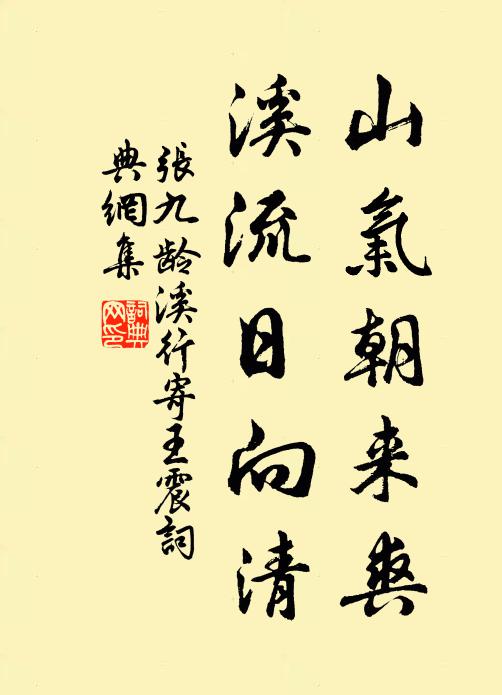 山氣朝来爽
溪流日向清
張九龄溪行寄王震詞
典網集
詞典
网印